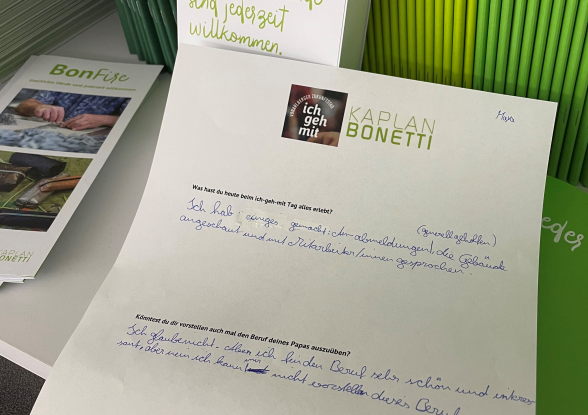 sind jederzeit
willkommen.
BonFire
KAPLAN
BONETTI
ich
geh
mit
KAPLAN
BONETTI
Was hast du heute beim ich-geh-mit Tag alles erlebt?
Ich hab einiges gemacht: An-abmeldungen, die Gebäude
angeschaut und mit Mitarbeiter/innen gesprochen.
Könntest du dir vorstellen auch mal den Beruf deines Papas auszuüben?
Ich glaube nicht. Aber ich finde den Beruf sehr schön und interes
sant, aber nein ich kann mir nicht vorstellen diesen